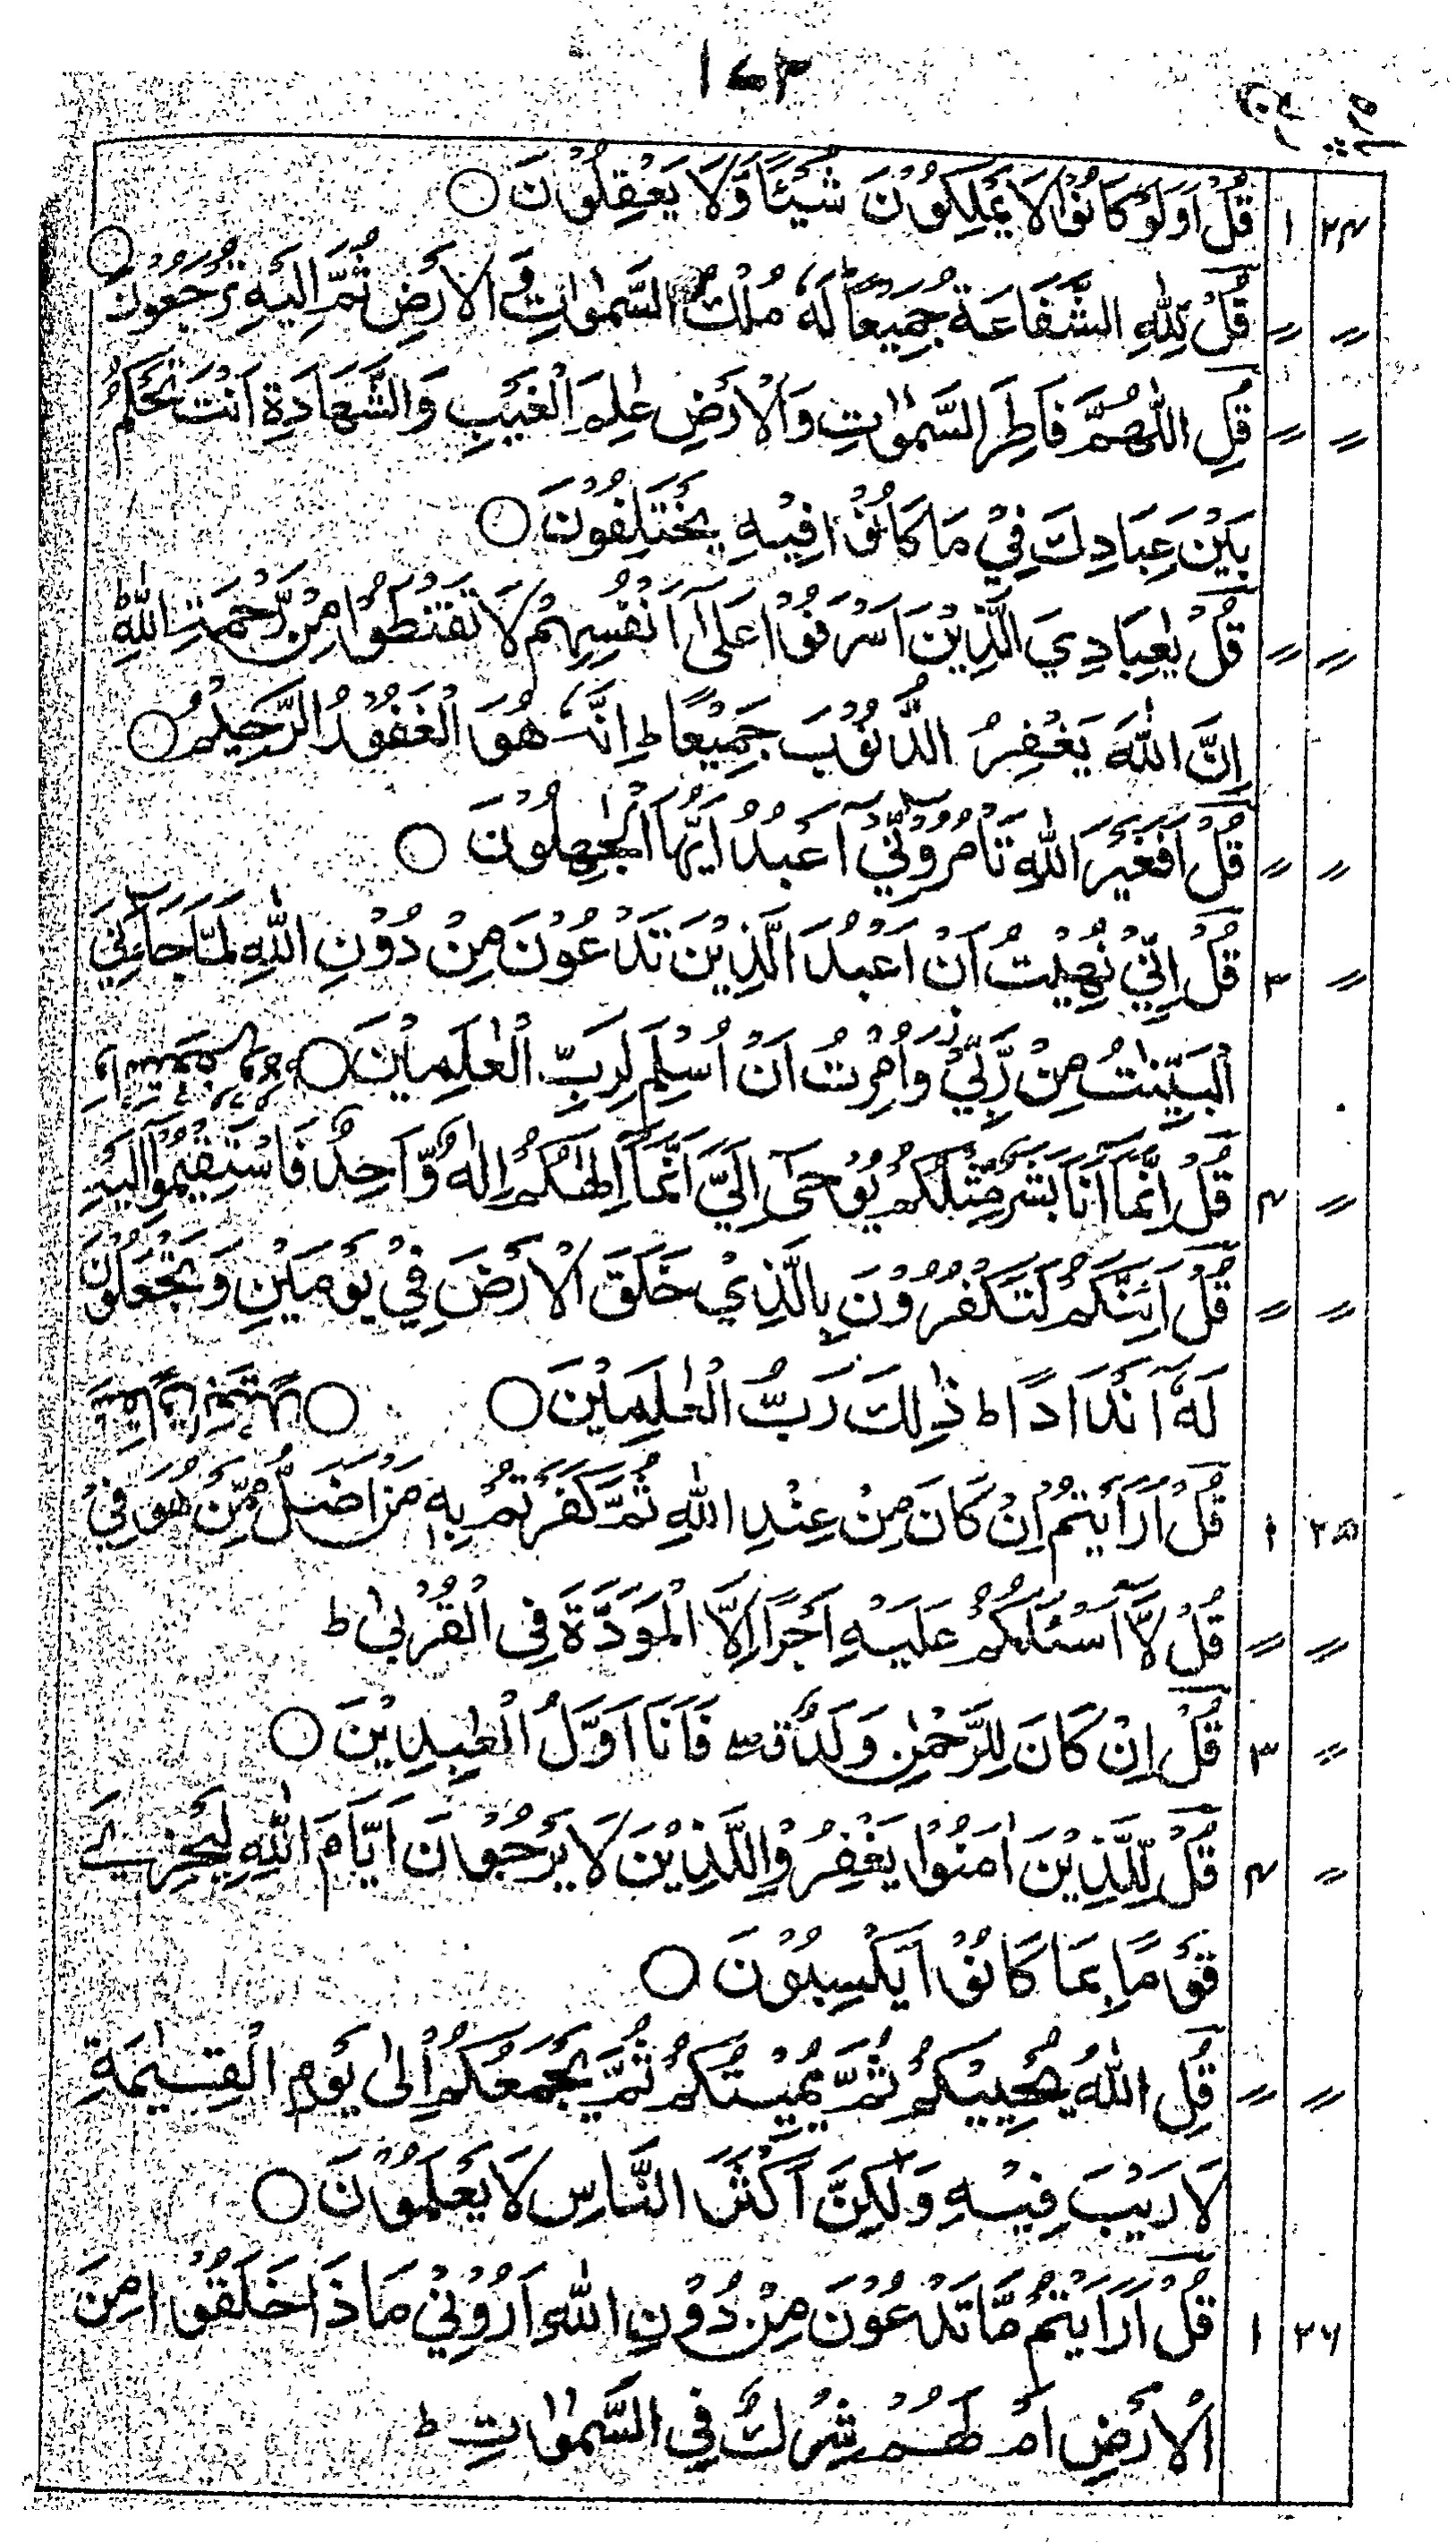 ۱۷۳
پارہ
۲۴ ۱ قُلْ اَوَلَوْ كَانُوْا لَا يَمْلِكُوْنَ شَيْئًا وَّلَا يَعْقِلُوْنَ ○
〃 〃 قُلْ لِّلّٰهِ الشَّفَاعَةُ جَمِيْعًا ط لَهٗ مُلْكُ السَّمٰوٰتِ وَالْاَرْضِ ثُمَّ اِلَيْهِ تُرْجَعُوْنَ ○
〃 〃 قُلِ اللّٰهُمَّ فَاطِرَ السَّمٰوٰتِ وَالْاَرْضِ عٰلِمَ الْغَيْبِ وَالشَّهَادَةِ اَنْتَ تَحْكُمُ
بَيْنَ عِبَادِكَ فِيْ مَا كَانُوْا فِيْهِ يَخْتَلِفُوْنَ ○
〃 〃 قُلْ يٰعِبَادِيَ الَّذِيْنَ اَسْرَفُوْا عَلٰٓى اَنْفُسِهِمْ لَا تَقْنَطُوْا مِنْ رَّحْمَةِ اللّٰهِ ط
اِنَّ اللّٰهَ يَغْفِرُ الذُّنُوْبَ جَمِيْعًا ط اِنَّهٗ هُوَ الْغَفُوْرُ الرَّحِيْمُ ○
〃 〃 قُلْ اَفَغَيْرَ اللّٰهِ تَاْمُرُوْٓنِّيْٓ اَعْبُدُ اَيُّهَا الْجٰهِلُوْنَ ○
〃 ۳ قُلْ اِنِّيْ نُهِيْتُ اَنْ اَعْبُدَ الَّذِيْنَ تَدْعُوْنَ مِنْ دُوْنِ اللّٰهِ لَمَّا جَآءَنِيَ
الْبَيِّنٰتُ مِنْ رَّبِّيْ وَاُمِرْتُ اَنْ اُسْلِمَ لِرَبِّ الْعٰلَمِيْنَ ○
〃 ۴ قُلْ اِنَّمَآ اَنَا بَشَرٌ مِّثْلُكُمْ يُوْحٰٓى اِلَيَّ اَنَّمَآ اِلٰهُكُمْ اِلٰهٌ وَّاحِدٌ فَاسْتَقِيْمُوْٓا اِلَيْهِ
〃 〃 قُلْ اَئِنَّكُمْ لَتَكْفُرُوْنَ بِالَّذِيْ خَلَقَ الْاَرْضَ فِيْ يَوْمَيْنِ وَتَجْعَلُوْنَ
لَهٗٓ اَنْدَادًا ط ذٰلِكَ رَبُّ الْعٰلَمِيْنَ ○ ○
۲۵ ۱ قُلْ اَرَاَيْتُمْ اِنْ كَانَ مِنْ عِنْدِ اللّٰهِ ثُمَّ كَفَرْتُمْ بِهٖ مَنْ اَضَلُّ مِمَّنْ هُوَ فِيْ
〃 〃 قُلْ لَّآ اَسْئَلُكُمْ عَلَيْهِ اَجْرًا اِلَّا الْمَوَدَّةَ فِى الْقُرْبٰى ط
〃 ۳ قُلْ اِنْ كَانَ لِلرَّحْمٰنِ وَلَدٌ ق فَاَنَا اَوَّلُ الْعٰبِدِيْنَ ○
〃 ۴ قُلْ لِّلَّذِيْنَ اٰمَنُوْا يَغْفِرُوْا لِلَّذِيْنَ لَا يَرْجُوْنَ اَيَّامَ اللّٰهِ لِيَجْزِيَ
قَوْمًا بِمَا كَانُوْا يَكْسِبُوْنَ ○
〃 〃 قُلِ اللّٰهُ يُحْيِيْكُمْ ثُمَّ يُمِيْتُكُمْ ثُمَّ يَجْمَعُكُمْ اِلٰى يَوْمِ الْقِيٰمَةِ
لَا رَيْبَ فِيْهِ وَلٰكِنَّ اَكْثَرَ النَّاسِ لَا يَعْلَمُوْنَ ○
۲۶ ۱ قُلْ اَرَاَيْتُمْ مَّا تَدْعُوْنَ مِنْ دُوْنِ اللّٰهِ اَرُوْنِيْ مَاذَا خَلَقُوْا مِنَ
الْاَرْضِ اَمْ لَهُمْ شِرْكٌ فِى السَّمٰوٰتِ ط